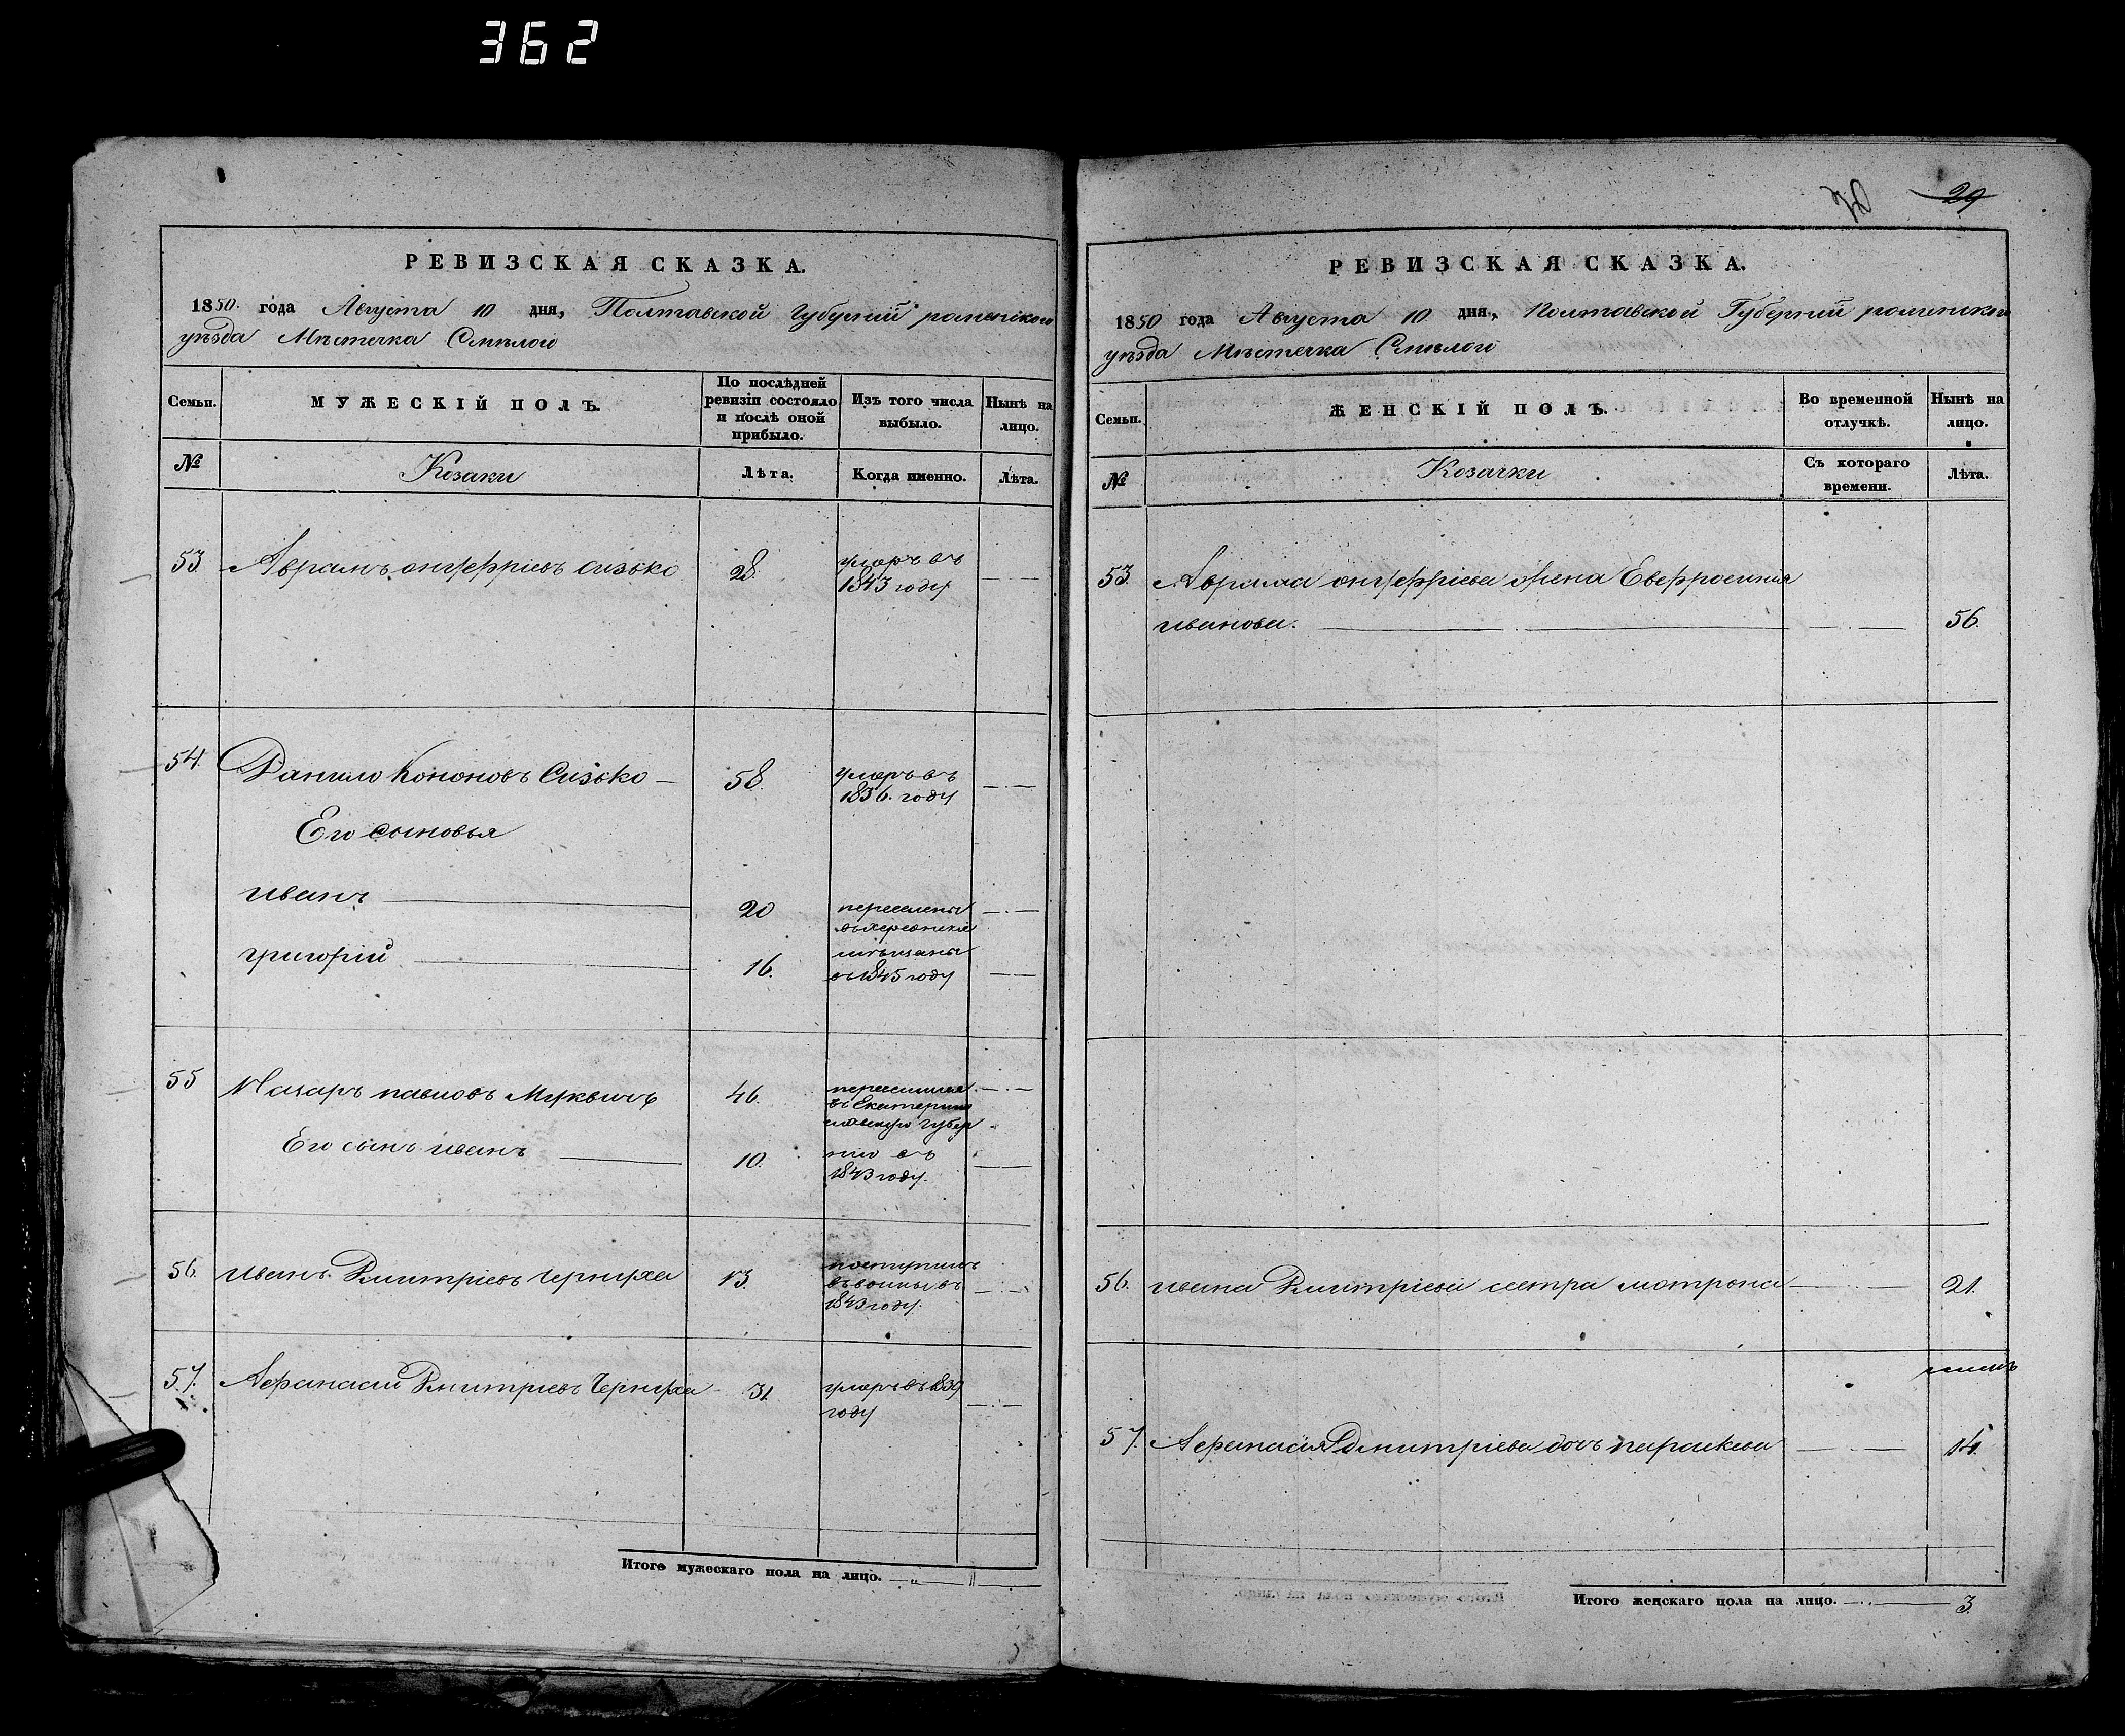 362
РЕВИЗСКАЯ СКАЗКА.
1850. года Августа 10 дня, Полтавской Губерніи роменского
уѣзда Мѣстечка Смѣлого
Семьи.
МУЖЕСКІЙ ПОЛЪ.
По послѣдней
ревизіи состояло
и послѣ оной
прибыло.
Изъ того числа
выбыло.
Нынѣ на
лицо.
№
Козаки
Лѣта.
Когда именно.
Лѣта.
53 Аврамъ онуфріевъ Сизько 28.
умеръ въ
1843 году
54. Данило Кононовъ Сизько 58.
умеръ въ
1836. году
Его сыновья
иванъ 20
григорій 16.
переселены
въ херсонскіе
мѣщаны
въ 1845 году
55 Назаръ павловъ 46.
Его сынъ иванъ 10.
переселился
въ Екатерино
славскую губер
нію въ
1843 году.
56. иванъ Дмитріевъ Чернуха 13.
поступилъ
въ воины въ
1843 году.
57. Афанасій Дмитріевъ Чернуха 31.
умеръ въ 1839
году
Итого мужескаго пола на лицо.
70 29
РЕВИЗСКАЯ СКАЗКА.
1850 года Августа 10 дня, Полтавской Губерніи роменского
уѣзда Мѣстечка Смѣлого
Семьи.
ЖЕНСКІЙ ПОЛЪ.
Во временной
отлучкѣ.
Нынѣ на
лицо.
№
Козачки
Съ котораго
времени.
Лѣта.
53. Аврама онуфріева жена Евфросинія
иванова. 56.
56. ивана Дмитріева сестра мотрона 21.
57. Афанасія Дмитріева дочь параскева 14.
Итого женскаго пола на лицо. 3.